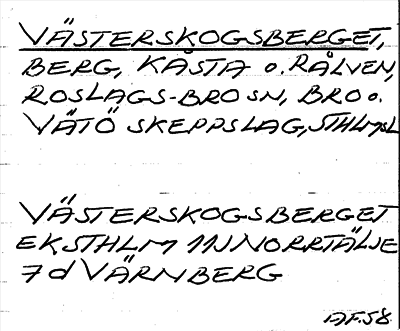 VÄSTERSKOGSBERGET,
BERG, KÅSTA o. RÅLVEN,
ROSLAGS-BRO SN, BRO o.
VÄTÖ SKEPPSLAG, STHLMSL
VÄSTERSKOGSBERGET
EKSTHLM 11J NORRTÄLJE
7 d VÄRNBERG
AF.58